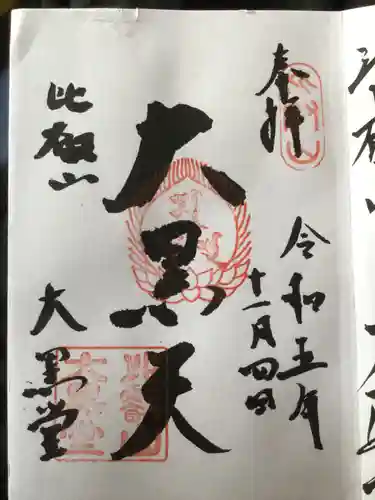 奉拝
令和五年
十一月四日
大黒天
比叡山
大黒堂